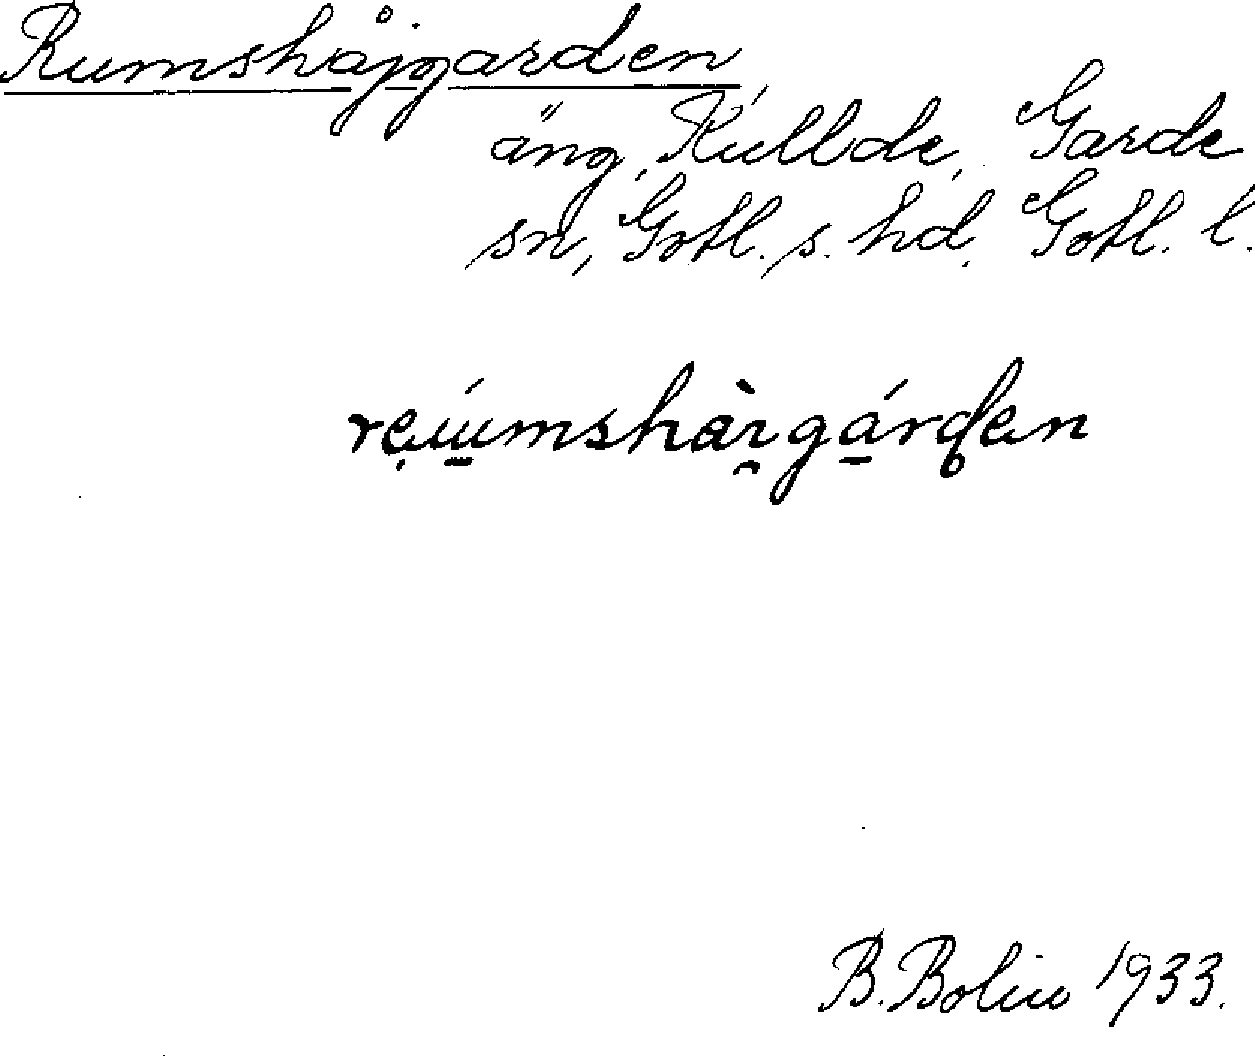 Rumshåjgarden
äng, Kullde, Garde
sn, Gotl. s. hd. Gotl. l.
B. Bolin 1933.